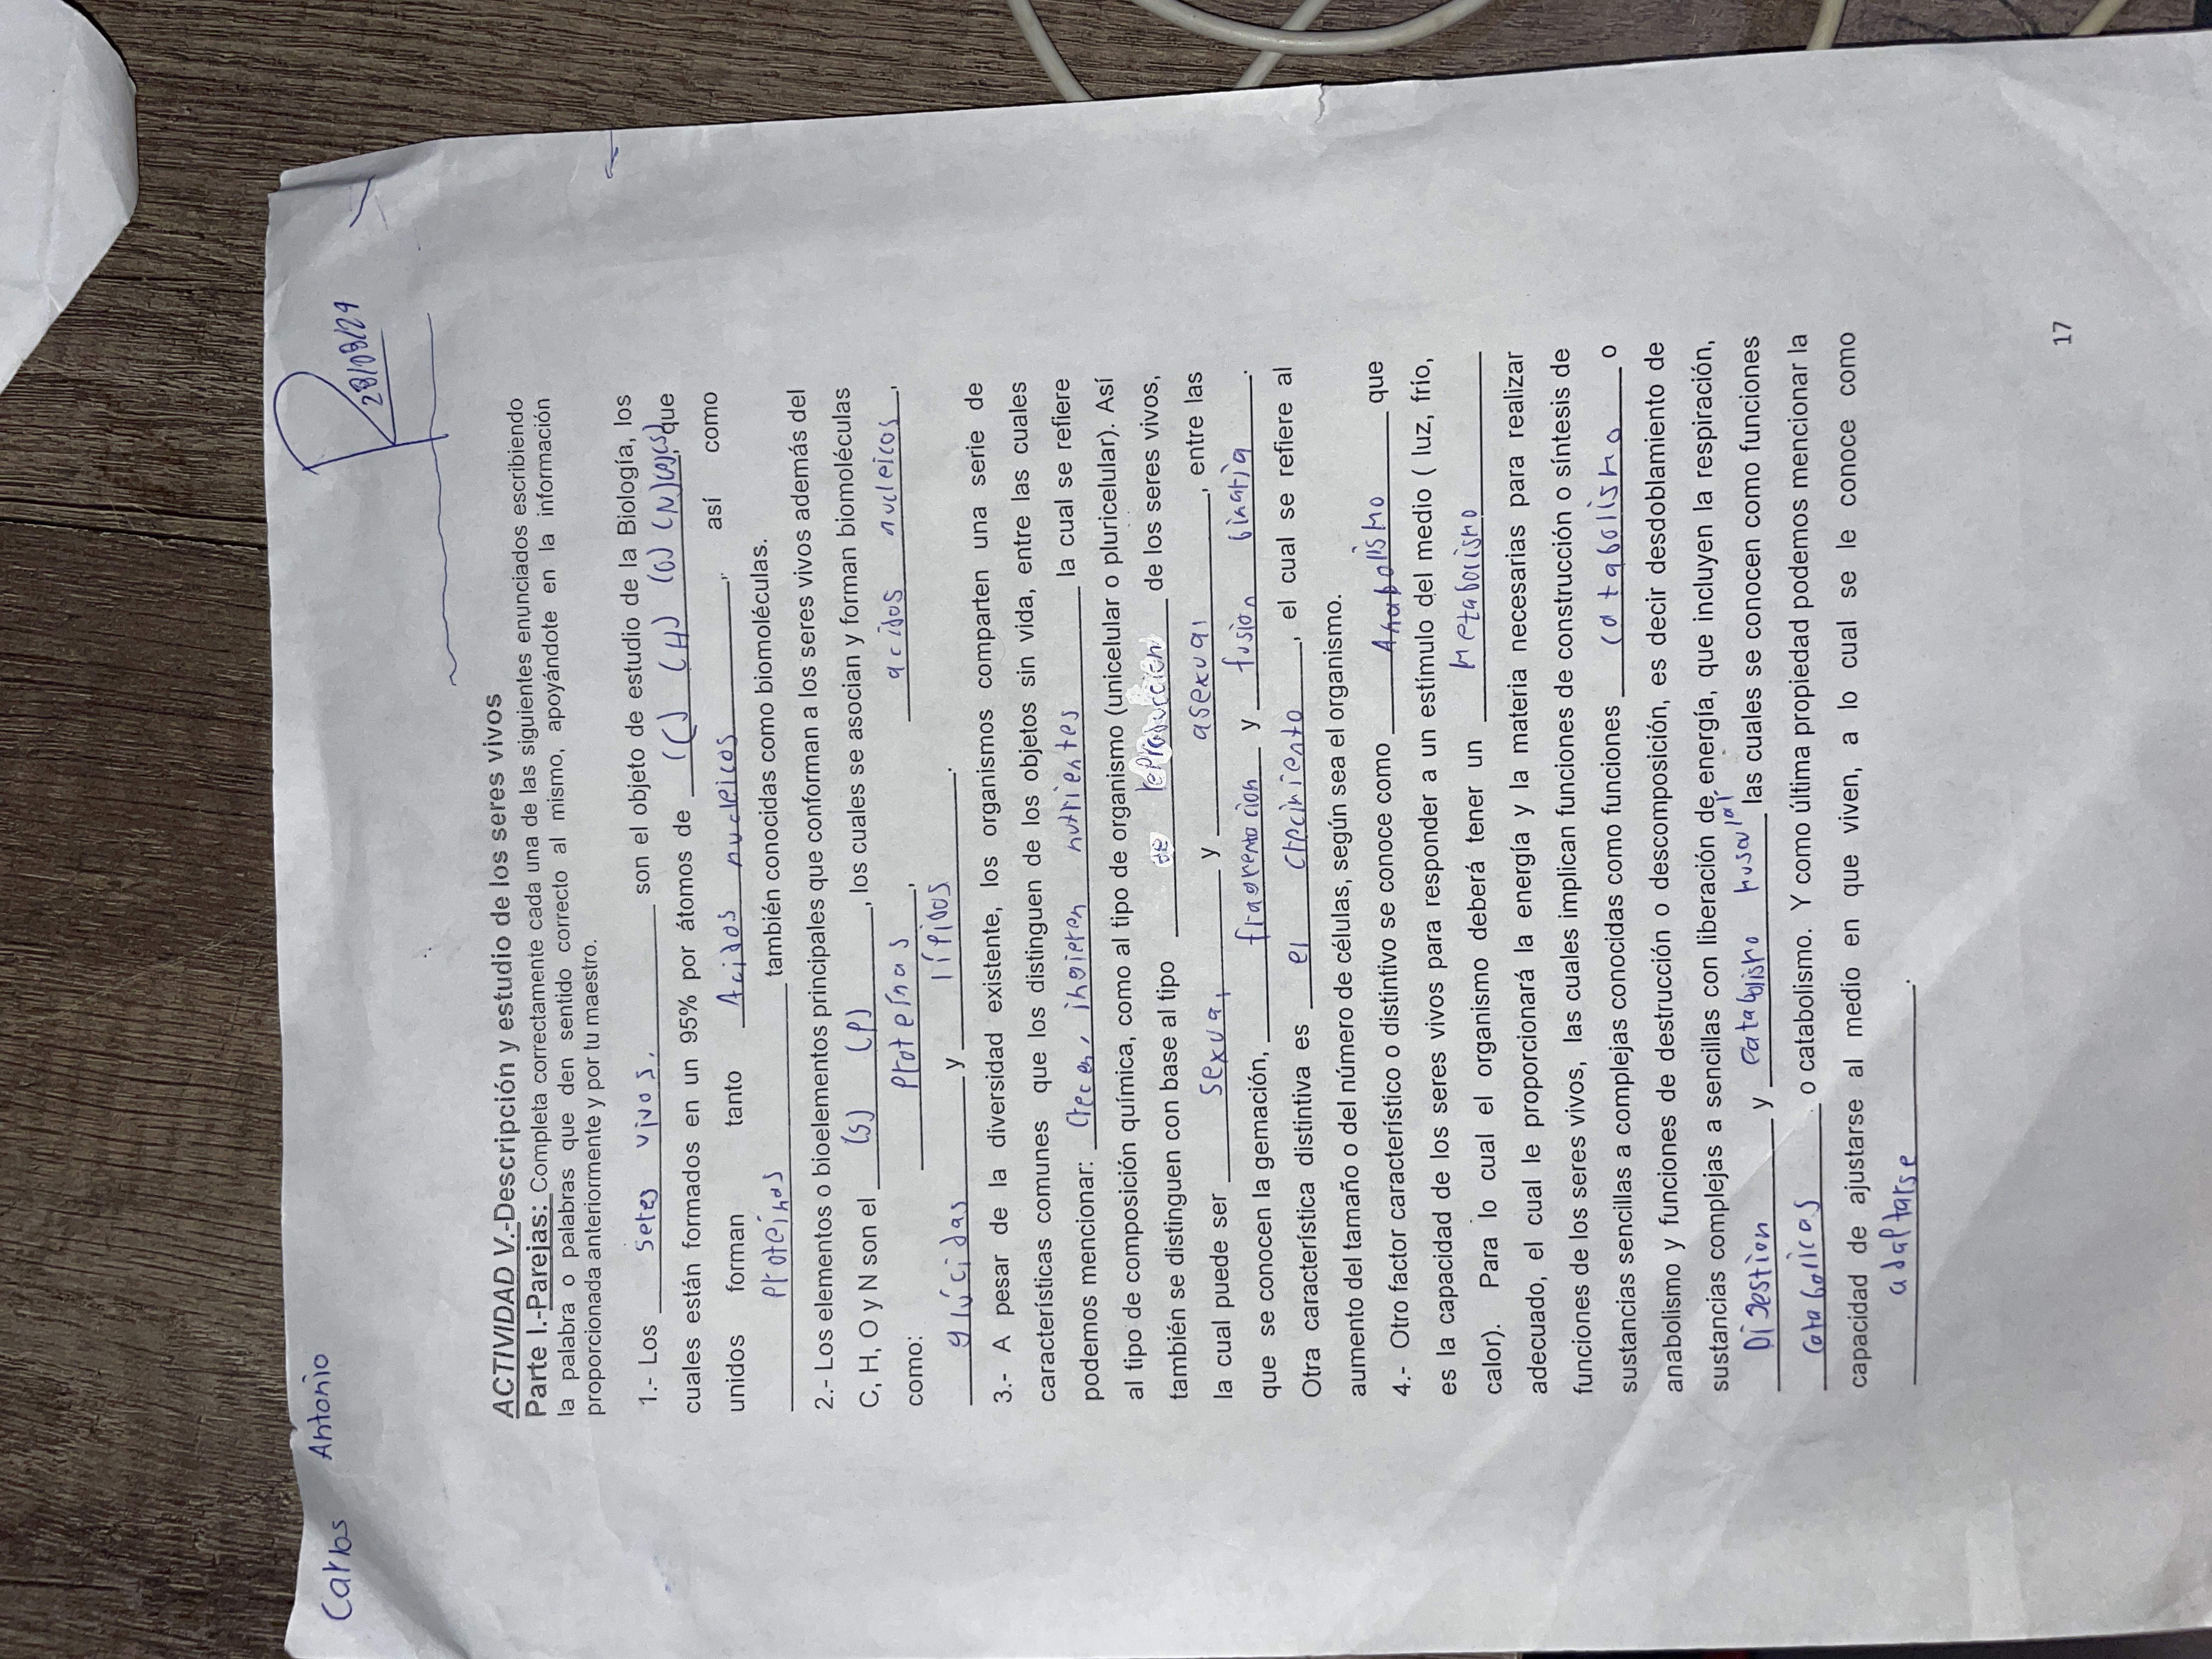 Carlos Antonio
28/08/24
ACTIVIDAD V.-Descripción y estudio de los seres vivos
Parte I.-Parejas: Completa correctamente cada una de las siguientes enunciados escribiendo
la palabra o palabras que den sentido correcto al mismo, apoyándote en la información
proporcionada anteriormente y por tu maestro.
1.- Los seres vivos. son el objeto de estudio de la Biología, los
cuales están formados en un 95% por átomos de (C) (H) (O) (N) , que
unidos forman tanto Acidos nucleicos , así como
Proteínas también conocidas como biomoléculas.
2.- Los elementos o bioelementos principales que conforman a los seres vivos además del
C, H, O y N son el (S) (P) , los cuales se asocian y forman biomoléculas
como: Proteínas , acidos nucleicos ,
glúcidas y lípidos .
3.- A pesar de la diversidad existente, los organismos comparten una serie de
características comunes que los distinguen de los objetos sin vida, entre las cuales
podemos mencionar: Crecen, ingieren nutrientes la cual se refiere
al tipo de composición química, como al tipo de organismo (unicelular o pluricelular). Así
también se distinguen con base al tipo de reproducción de los seres vivos,
la cual puede ser sexual y asexual , entre las
que se conocen la gemación, fragmentacion y fusion binaria .
Otra característica distintiva es el crecimiento , el cual se refiere al
aumento del tamaño o del número de células, según sea el organismo.
4.- Otro factor característico o distintivo se conoce como Anabolismo que
es la capacidad de los seres vivos para responder a un estímulo del medio ( luz, frío,
calor). Para lo cual el organismo deberá tener un Metabolismo
adecuado, el cual le proporcionará la energía y la materia necesarias para realizar
funciones de los seres vivos, las cuales implican funciones de construcción o síntesis de
sustancias sencillas a complejas conocidas como funciones catabolismo o
anabolismo y funciones de destrucción o descomposición, es decir desdoblamiento de
sustancias complejas a sencillas con liberación de energía, que incluyen la respiración,
Digestion y catabolismo musular las cuales se conocen como funciones
catabolicas o catabolismo. Y como última propiedad podemos mencionar la
capacidad de ajustarse al medio en que viven, a lo cual se le conoce como
adaptarse .
17